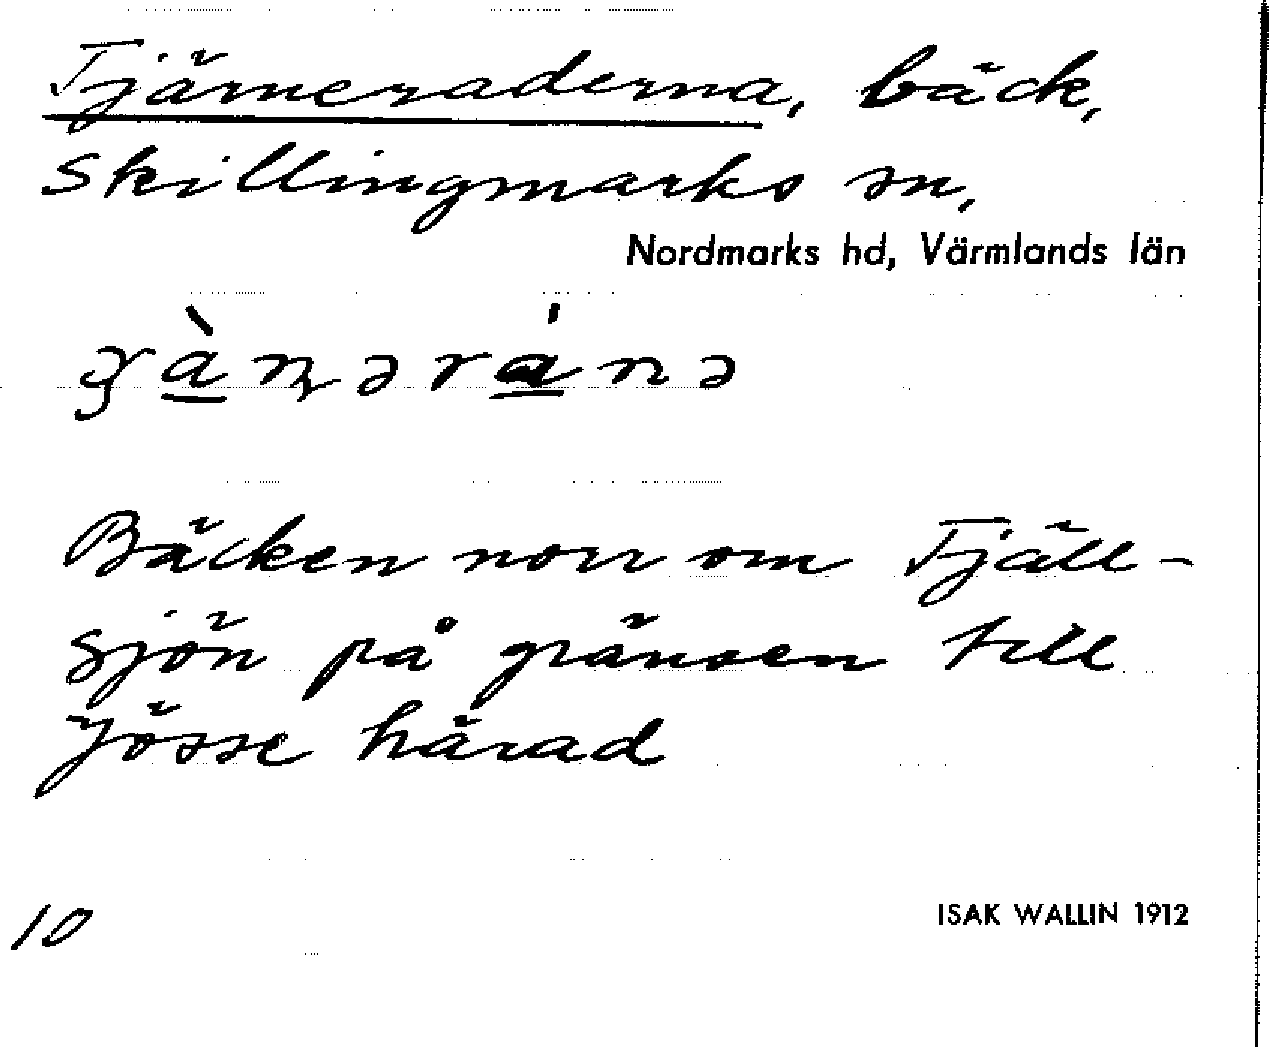 Tjärneraderna, bäck,
Skillingmarks sn,
Nordmarks hd, Värmlands län
Bäcken norr om Tjäll-
sjön på gränsen till
Jösse härad
10
ISAK WALLIN 1912